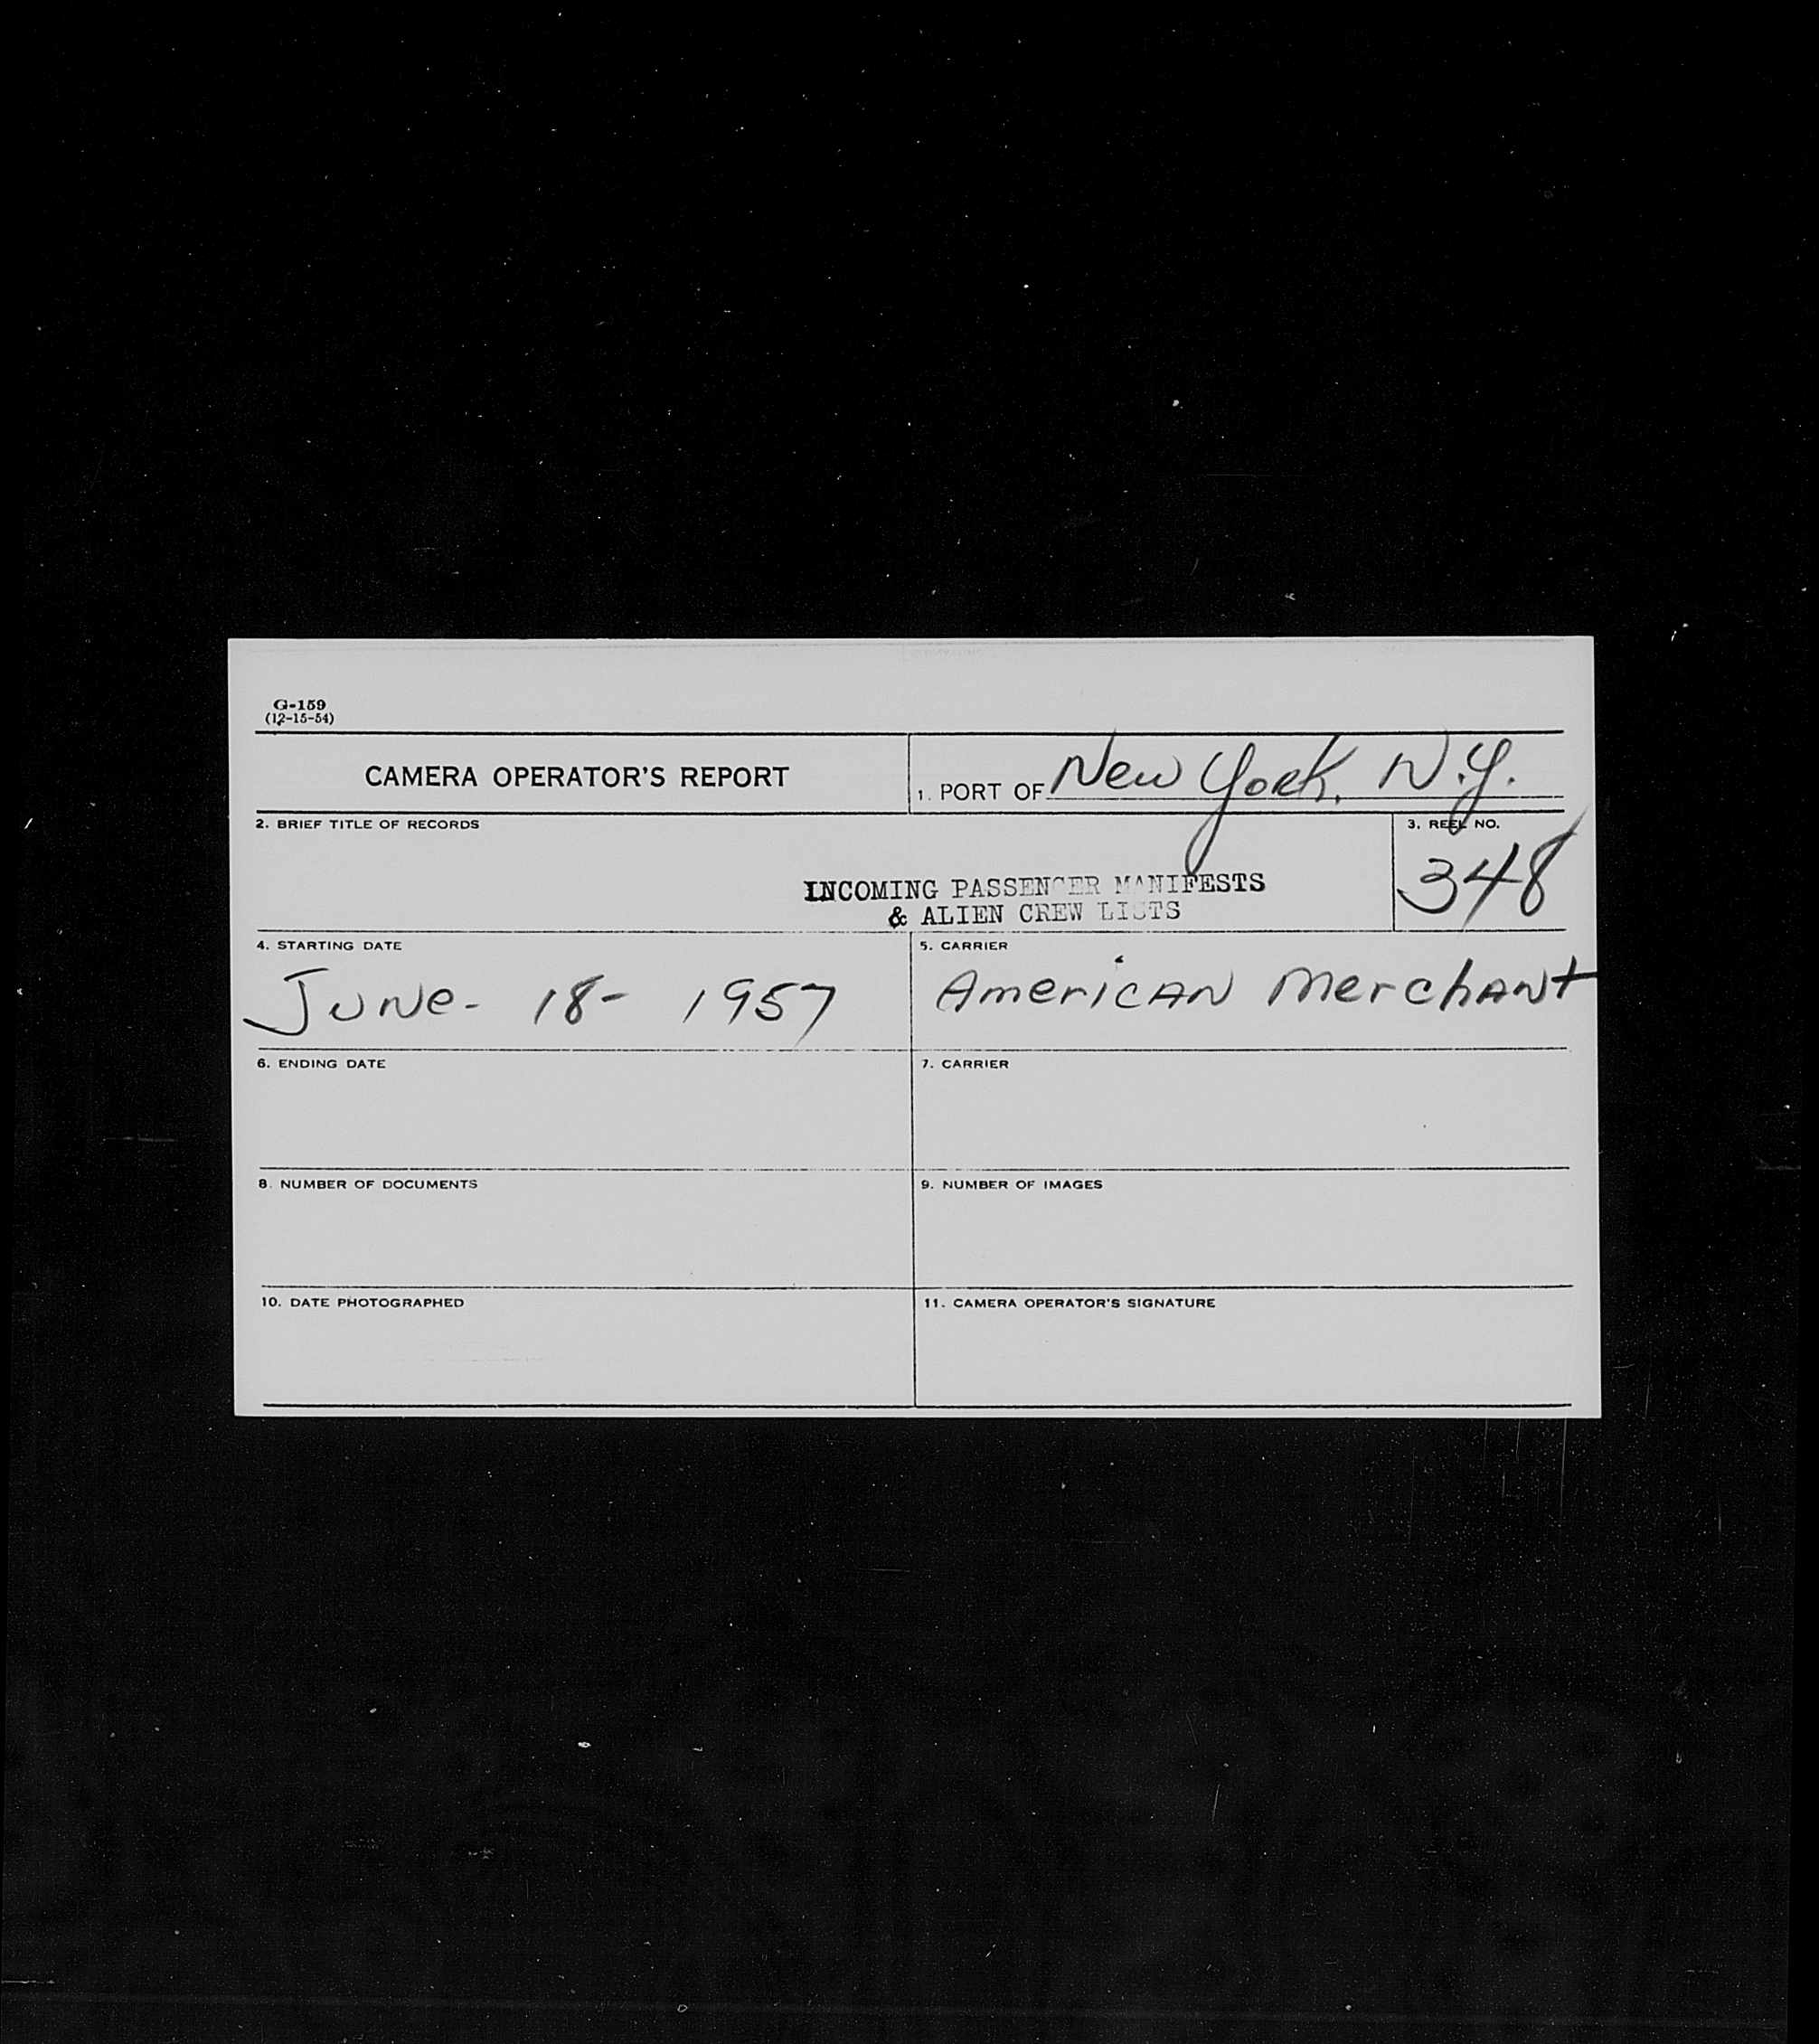 G-159
(12-15-54)
CAMERA OPERATOR'S REPORT
1. PORT OF New York, N.Y.
2. BRIEF TITLE OF RECORDS
INCOMING PASSENGER MANIFESTS
& ALIEN CREW LISTS
3. REEL NO.
348
4. STARTING DATE
June - 18 - 1957
5. CARRIER
American Merchant
6. ENDING DATE
7. CARRIER
8. NUMBER OF DOCUMENTS
9. NUMBER OF IMAGES
10. DATE PHOTOGRAPHED
11. CAMERA OPERATOR'S SIGNATURE